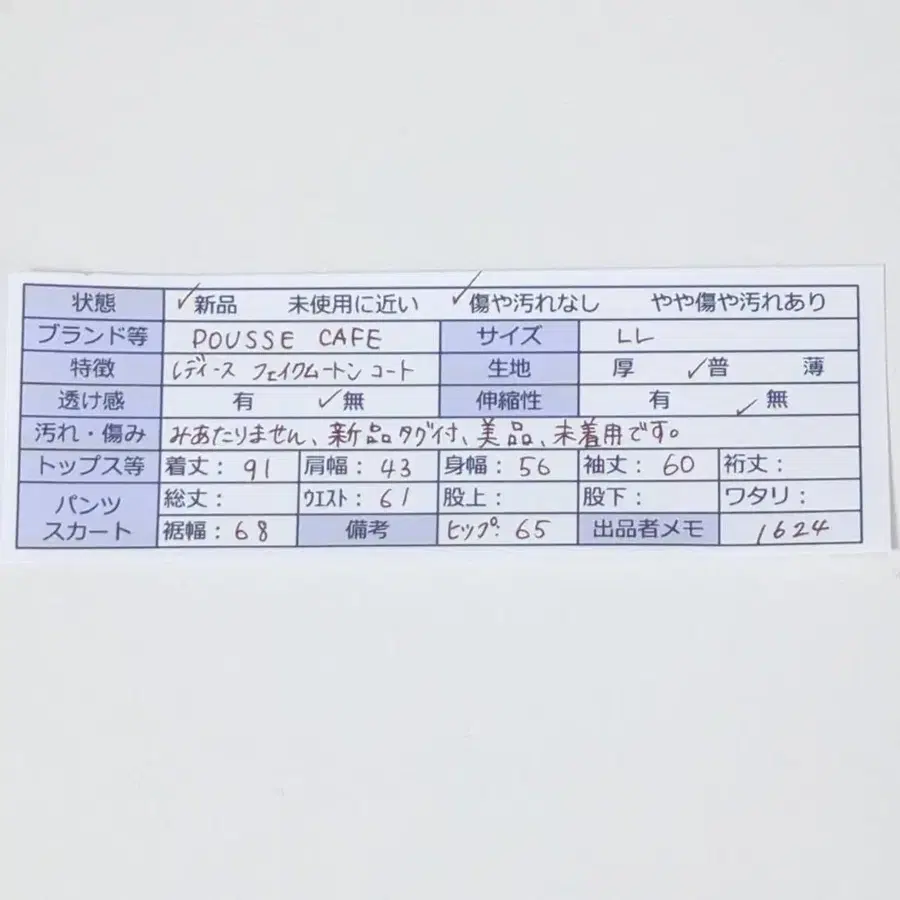 状態 ✓新品 未使用に近い ✓傷や汚れなし やや傷や汚れあり
ブランド等 POUSSE CAFE サイズ LL
特徴 レディース フェイクムートン コート 生地 厚 ✓普 薄
透け感 有 ✓無 伸縮性 有 ✓無
汚れ・傷み みあたりません、新品タグ付、美品、未着用です。
トップス等 着丈：91 肩幅：43 身幅：56 袖丈：60 裄丈：
パンツ スカート 総丈： ウエスト：61 股上： 股下： ワタリ：
裾幅：68 備考 ヒップ：65 出品者メモ 1624